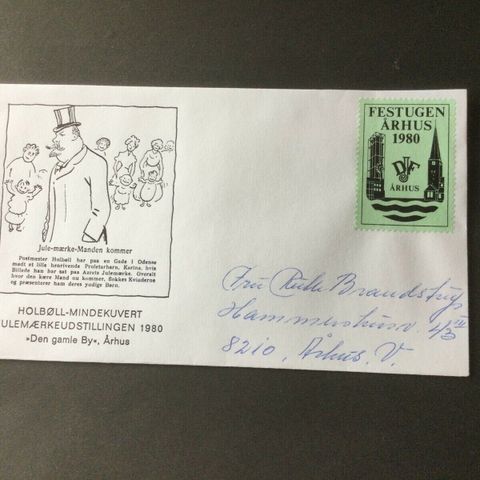 FESTUGEN
ÅRHUS
1980
ÅRHUS
Jule-mærke-Manden kommer
Postmester Holbøll har paa en Gade i Odense
mødt et lille henrivende Proletarbarn, Karina, hvis
Billede han har sat paa Aarets Julemærke. Overalt
hvor den kære Mand nu kommer, flokkes Kvinderne
og præsenterer ham deres yndige Børn.
HOLBØLL-MINDEKUVERT
ULEMÆRKEUDSTILLINGEN 1980
»Den gamle By«, Århus
Fru Brandstrup
8210, Århus. V.